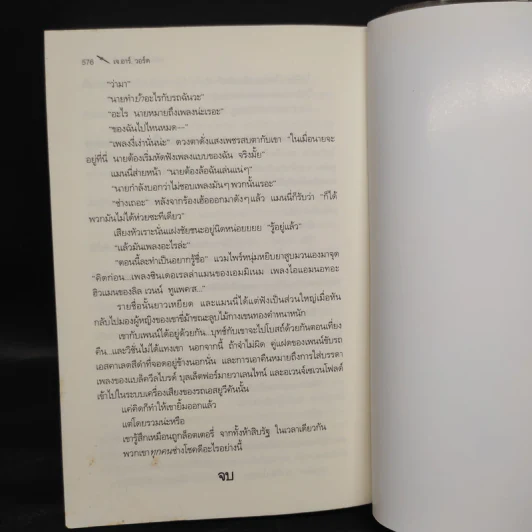 576 เจ.อาร์. วอร์ด
"ว่ามา"
"นายทำบ้าอะไรกับรถฉันวะ"
"อะไร นายหมายถึงเพลงน่ะเรอะ"
"ของฉันไปไหนหมด—"
"เพลงงี่เง่านั่นน่ะ" ดวงตาดั่งแสงเพชรสบตากับเขา "ในเมื่อนายจะ
อยู่ที่นี่ นายต้องเริ่มหัดฟังเพลงแบบของฉัน จริงมั้ย"
แมนนี่ส่ายหน้า "นายต้องล้อฉันเล่นแน่ๆ"
"นายกำลังบอกว่าไม่ชอบเพลงมันๆ พวกนั้นเรอะ"
"ช่างเถอะ" หลังจากร้องเฮ้อออกมาดังๆ แล้ว แมนนี่ก็รับว่า "ก็ได้
พวกมันไม่ได้ห่วยซะทีเดียว"
เสียงหัวเราะนั่นแฝงชัยชนะอยู่นิดหน่อยยยย "รู้อยู่แล้ว"
"แล้วมันเพลงอะไรล่ะ"
"ตอนนี้ละทำเป็นอยากรู้ชื่อ" แวมไพร์หนุ่มหยิบยาสูบมวนเองมาจุด
"คิดก่อน...เพลงซินเดอเรลล่าแมนของเอมมิเนม เพลงไอแอมนอทอะ
ฮิวแมนของลิล เวนน์ ทูแพค'ส..."
รายชื่อนั้นยาวเหยียด และแมนนี่ได้แต่ฟังเป็นส่วนใหญ่เมื่อหัน
กลับไปมองผู้หญิงของเขาขี่ม้าขณะลูบไม้กางเขนทองคำหนาหนัก
เขากับเพนน์ได้อยู่ด้วยกัน...บุทช์กับเขาจะไปโบสถ์ด้วยกันตอนเที่ยง
คืน...และวิชันไม่ได้แทงเขา นอกจากนี้ ถ้าจำไม่ผิด คู่แฝดของเพนน์ขับรถ
เอสคาเลดสีดำที่จอดอยู่ข้างนอกนั่น และการเอาคืนหมายถึงการใส่บรรดา
เพลงของแบล็ควีลไบรด์ บุลเล็ตฟอร์มายวาเลนไทน์ และอเวนจ์เซเวนโฟลด์
เข้าไปในระบบเครื่องเสียงของรถเอสยูวีคันนั้น
แค่คิดก็ทำให้เขายิ้มออกแล้ว
แต่โดยรวมน่ะหรือ
เขารู้สึกเหมือนถูกล็อตเตอรี่ จากทั้งห้าสิบรัฐ ในเวลาเดียวกัน
พวกเขาทุกคนช่างโชคดีอะไรอย่างนี้
จบ